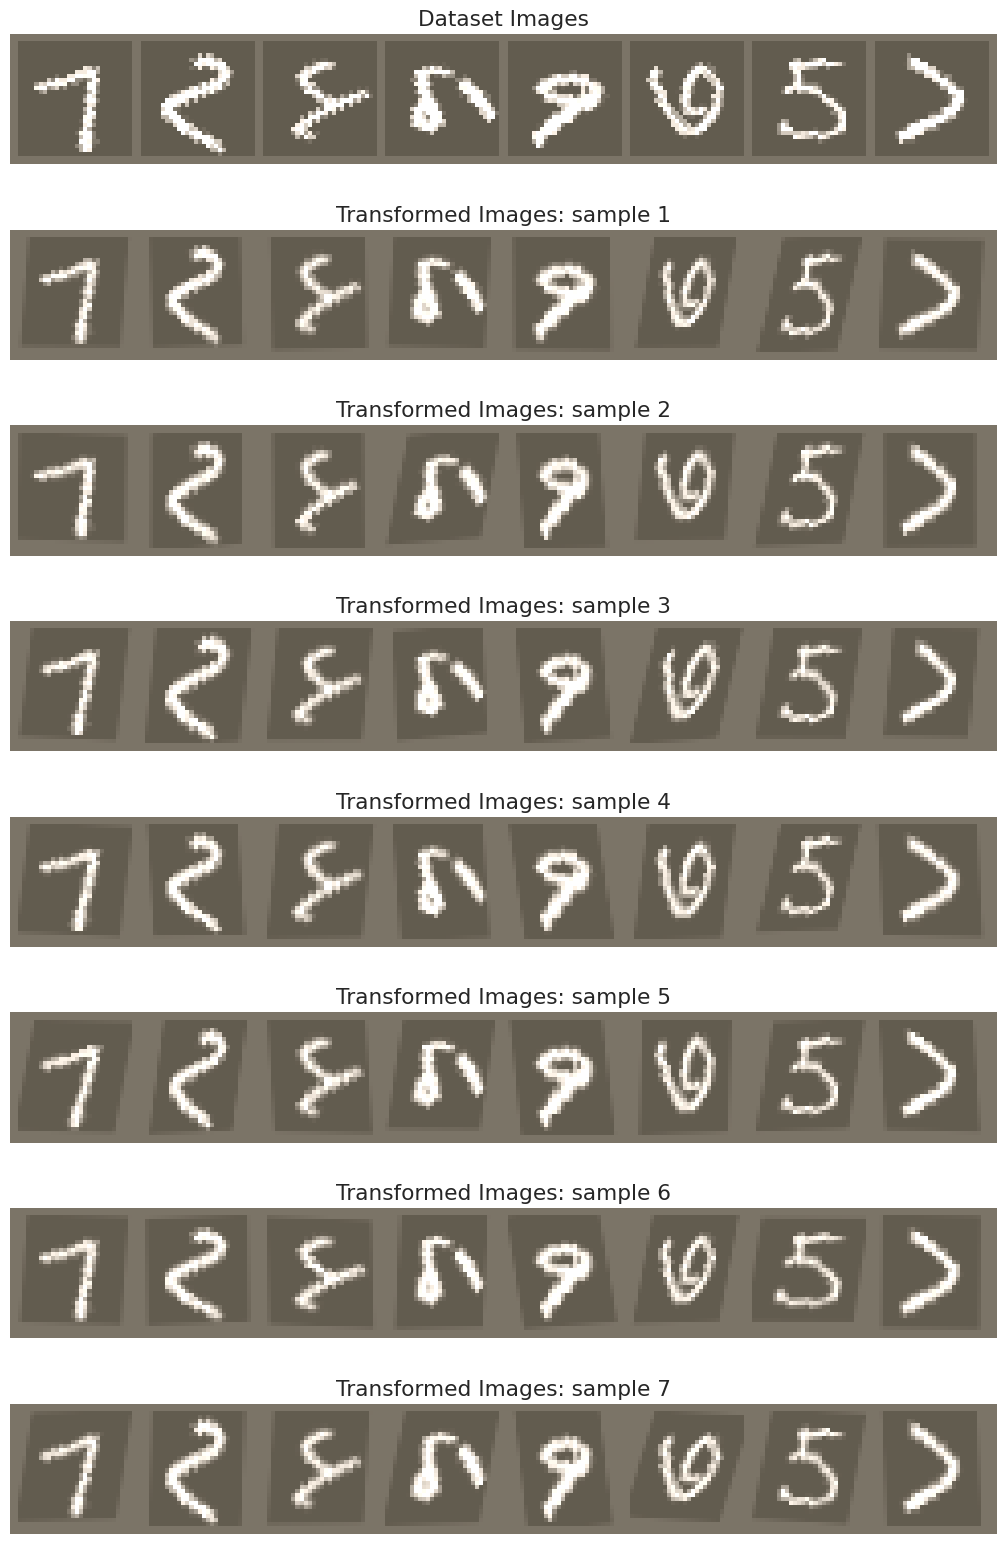 Dataset Images
7 2 9 6 5
Transformed Images: sample 1
7 2 9 6 5
Transformed Images: sample 2
7 2 9 6 5
Transformed Images: sample 3
7 2 9 6 5
Transformed Images: sample 4
7 2 9 6 5
Transformed Images: sample 5
7 2 9 6 5
Transformed Images: sample 6
7 2 9 6 5
Transformed Images: sample 7
7 2 9 6 5